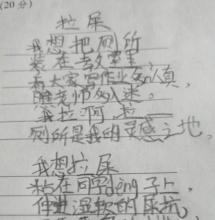 (20分)
拉屎
我想把厕所
装在教室里,
看大家写作业多认真,
瞧老师多入迷。
我拉啊拉——
厕所是我的灵感之地。
我想拉屎
粘在同学凳子上,
伸 湿软的尿